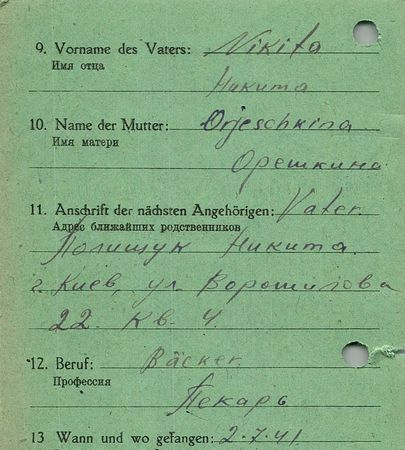 9. Vorname des Vaters: Nikita
Имя отца
Никита
10. Name der Mutter: Orjeschkina
Имя матери
Орешкина
11. Anschrift der nächsten Angehörigen: Vater.
Адрес ближайших родственников
Полищук Никита.
г. Киев, ул. Ворошилова
22 кв. 4.
12. Beruf: Bäcker.
Профессия
Пекарь
13 Wann und wo gefangen: 2.7.41.